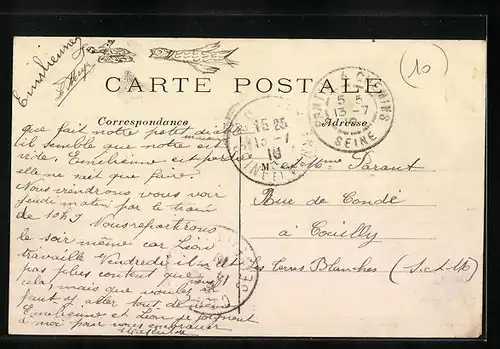 Emilienne
CARTE POSTALE
Correspondance
Adresse
(10)
que fait notre petit
il semble que notre est
vide, Emilienne est partie
elle ne sait que faire.
Nous viendrons vous voir
jeudi matin par le train
de 10h7 Nous repartirons
le soir même car Léon
travaille Vendredi il n'est
pas plus content que
cela, mais que voulez vous
faut y aller tout de même
Emilienne et Léon se joignent
à moi pour vous embrasser
Mathilde
15 25
13 -7
16
SEINE ET MARNE
5 5
13 -7
SEINE
M et Mme Parant
Rue de Condé
à Couilly
Les Terres Blanches (S. et M)